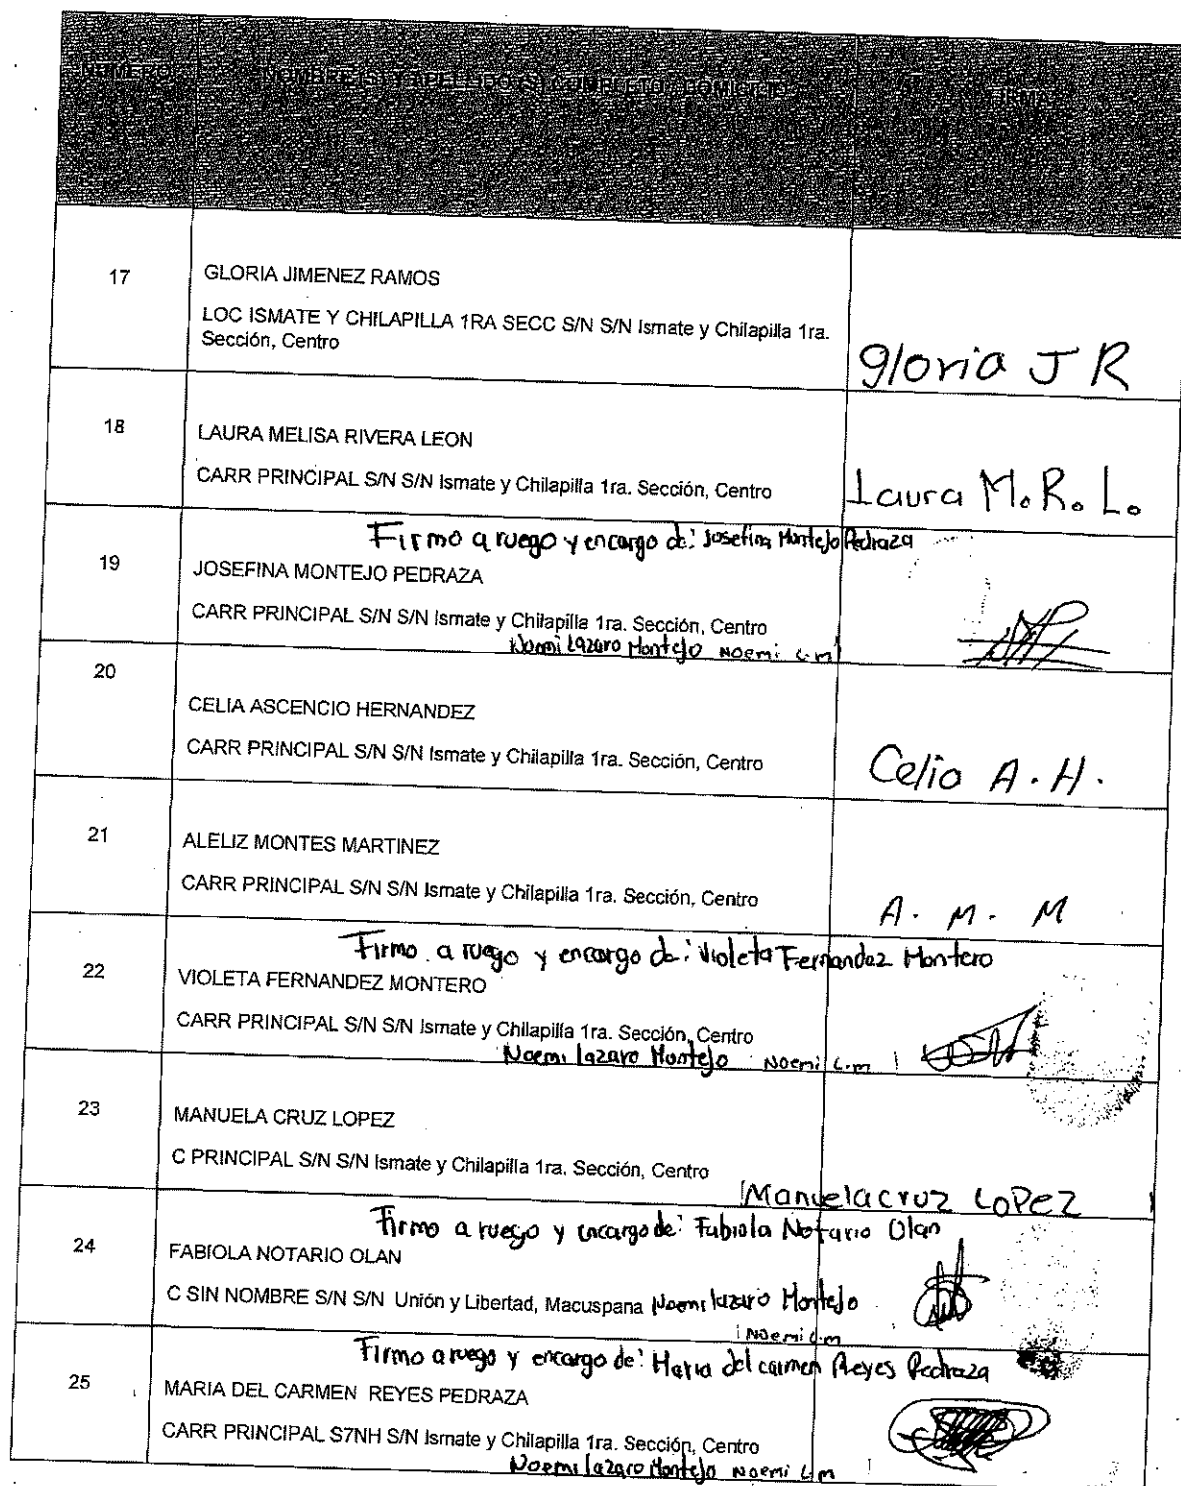 NUMERO NOMBRE (S) Y APELLIDO (S) COMPLETO / DOMICILIO FIRMA
17 GLORIA JIMENEZ RAMOS
LOC ISMATE Y CHILAPILLA 1RA SECC S/N S/N Ismate y Chilapilla 1ra.
Sección, Centro
gloria J R
18 LAURA MELISA RIVERA LEON
CARR PRINCIPAL S/N S/N Ismate y Chilapilla 1ra. Sección, Centro
Laura M. R. L.
Firmo a ruego y encargo de: Josefina Montejo Pedraza
19 JOSEFINA MONTEJO PEDRAZA
CARR PRINCIPAL S/N S/N Ismate y Chilapilla 1ra. Sección, Centro
Noemi Lazaro Montejo Noemi L.m
20
CELIA ASCENCIO HERNANDEZ
CARR PRINCIPAL S/N S/N Ismate y Chilapilla 1ra. Sección, Centro
Celia A. H.
21 ALELIZ MONTES MARTINEZ
CARR PRINCIPAL S/N S/N Ismate y Chilapilla 1ra. Sección, Centro
A. M. M
Firmo a ruego y encargo de: Violeta Fernandez Montero
22 VIOLETA FERNANDEZ MONTERO
CARR PRINCIPAL S/N S/N Ismate y Chilapilla 1ra. Sección, Centro
Noemi lazaro Montejo Noemi L.m
23 MANUELA CRUZ LOPEZ
C PRINCIPAL S/N S/N Ismate y Chilapilla 1ra. Sección, Centro
Manuela cruz LOPez
Firmo a ruego y encargo de: Fabiola Notario Olan
24 FABIOLA NOTARIO OLAN
C SIN NOMBRE S/N S/N Unión y Libertad, Macuspana Noemi lazaro Montejo
Noemi L.m
Firmo a ruego y encargo de: Maria del carmen Reyes Pedraza
25 MARIA DEL CARMEN REYES PEDRAZA
CARR PRINCIPAL S7NH S/N Ismate y Chilapilla 1ra. Sección, Centro
Noemi lazaro Montejo Noemi L.m